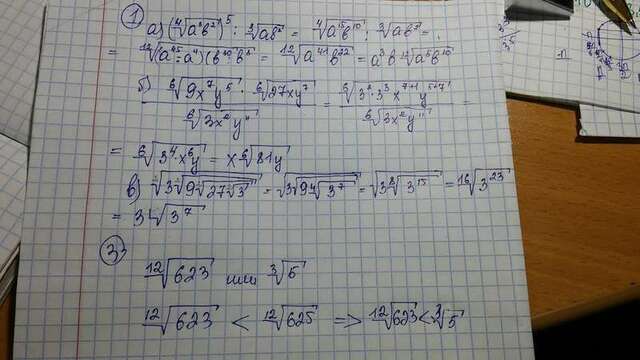 ① а) (⁴√(a³b²))⁵ : ³√(ab²) = ⁴√(a¹⁵b¹⁰) : ³√(ab²) =
= ¹²√((a⁴⁵ : a⁴)(b³⁰ : b⁸)) = ¹²√(a⁴¹b²²) = a³b ¹²√(a⁵b¹⁰)
б) ⁶√(9x⁷y⁵) · ⁶√(27xy⁷) / ⁶√(3x²y¹¹) = ⁶√(3² · 3³x⁷⁺¹y⁵⁺⁷) / ⁶√(3x²y¹¹) =
= ⁶√(3⁴ · x⁶y) = x ⁶√(81y)
в) √(3√(9√(27√3))) = √(3√(9 ⁴√(3⁷))) = √(3 ⁸√(3¹⁵)) = ¹⁶√(3²³)
= 3 ¹⁶√(3⁷)
③
¹²√623 или ³√5
¹²√623 < ¹²√625 => ¹²√623 < ³√5